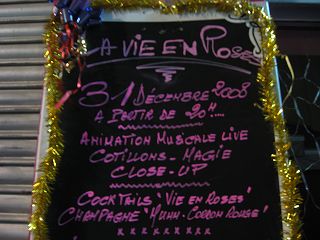 LA VIE EN ROSES
31 DÉCEMBRE 2008
A PARTIR DE 20H...
ANIMATION MUSICALE LIVE
COTILLONS - MAGIE
CLOSE-UP
COCKTAILS "VIE EN ROSES"
CHAMPAGNE "MUMM - CORDON ROUGE"